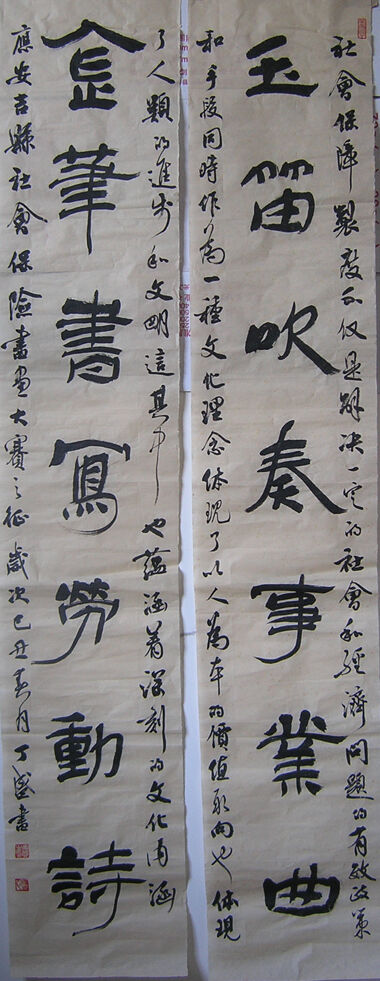 社會保障製度不仅是解决一定的社會和經濟問題的有效政策
玉笛吹奏事業曲
和手段同時作為一種文化理念体現了以人為本的價值取向也体現
了人類的進步和文明這其中也蘊涵着深刻的文化內涵
金筆書寫勞動詩
應安吉縣社會保險書画大賽之征歲次己丑春月丁盛書